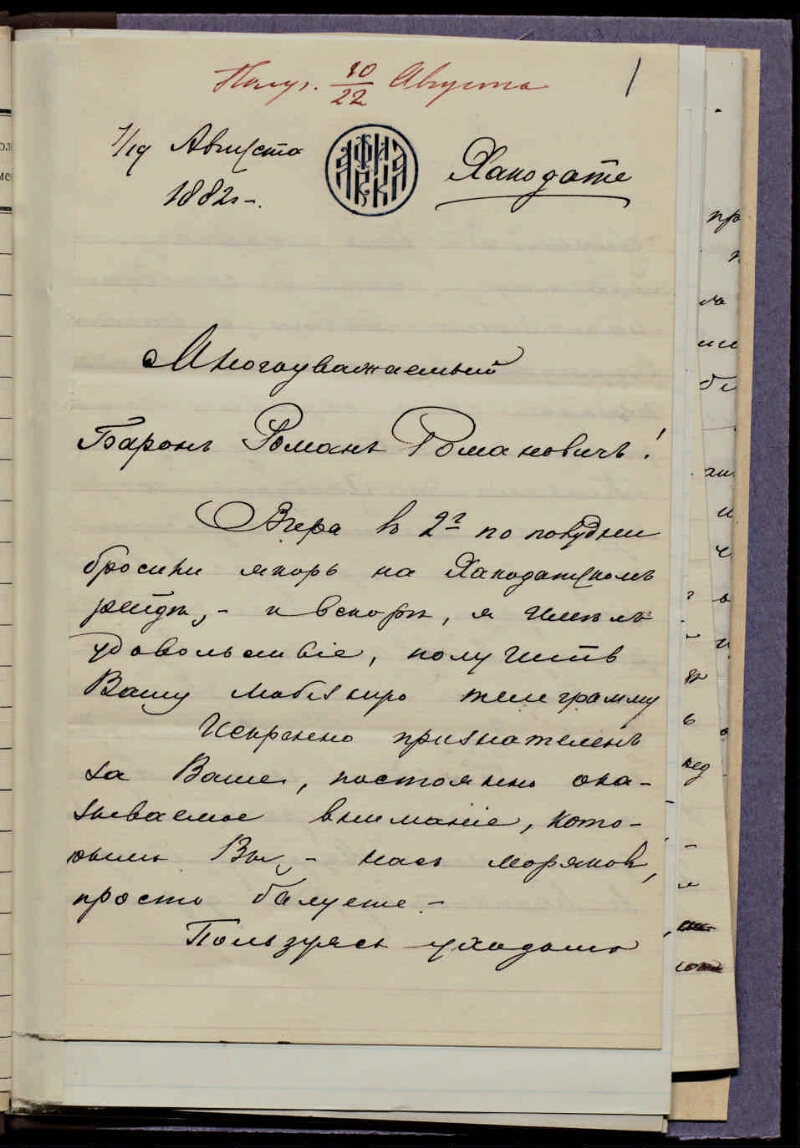 Получ. 10/22 Августа
1
7/19 Августа
1882 г.
АФРИКА
Хакодате
Многоуважаемый
Баронъ Романъ Романовичъ!
Вчера въ 2 ч. по полудни
бросили якорь на Хакодатскомъ
рейдѣ, - и вскорѣ, я имѣлъ
удовольствіе, получить
Вашу любезную телеграмму
Искренно признателенъ
за Ваше, постоянно ока-
зываемое вниманіе, кото-
рымъ Вы, - насъ моряковъ,
просто балуете. -
Пользуясь уходомъ